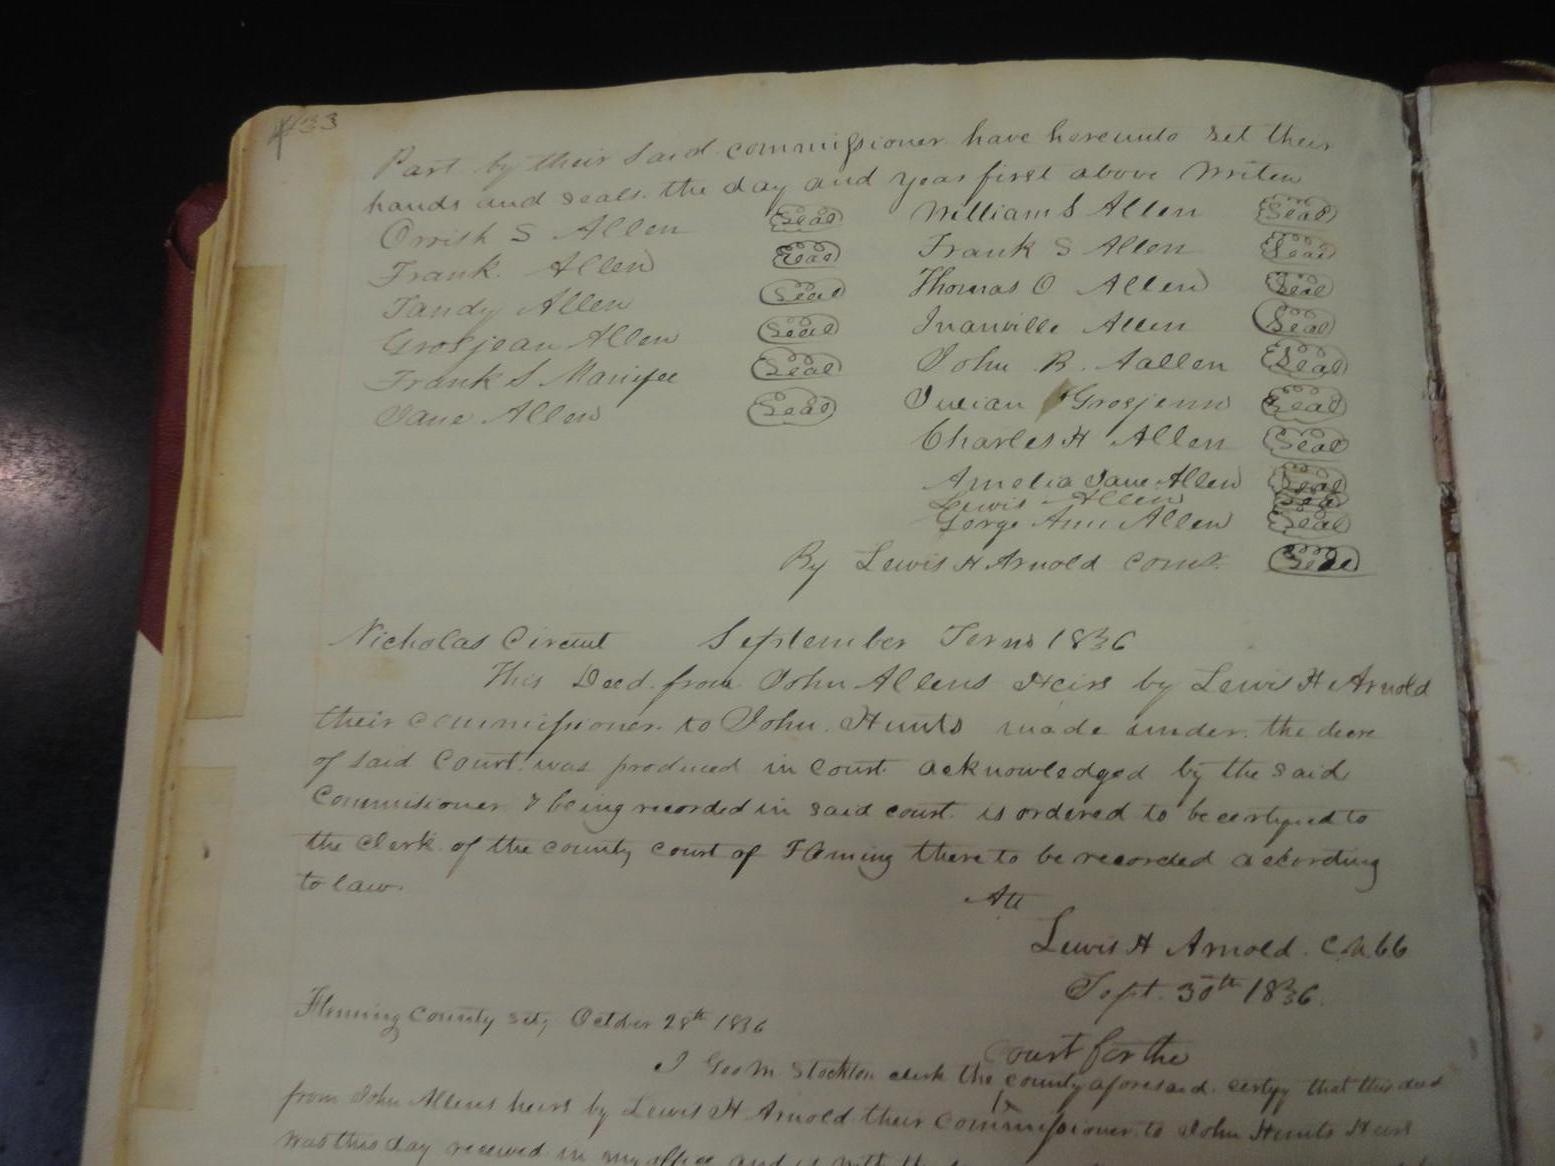 433
Part by their said commissioner have hereunto set their
hands and seals the day and year first above writen
Orrish S Allen (Seal) William S Allen (Seal)
Frank Allen (Seal) Frank S Allen (Seal)
Tandy Allen (Seal) Thomas O Allen (Seal)
Grosjean Allen (Seal) Allen (Seal)
Frank S (Seal) John B. Aallen (Seal)
Jane Allen (Seal) Grosjenn (Seal)
Charles H Allen (Seal)
Amelia Jane Allen (Seal)
Lewis Allen (Seal)
Gorge Ann Allen (Seal)
By Lewis H Arnold Comr. (Seal)
Nicholas Circuit September Term 1836
This Deed from John Allens Heirs by Lewis H Arnold
their commissioner to John Hunts made under the decre
of said Court was produced in court acknowledged by the said
Commisioner & being recorded in said court is ordered to be certified to
the clerk of the county court of Fleming there to be recorded according
to law.
Att
Lewis H Arnold
Sept. 30th 1836.
Fleming County Sct, October 28th 1836
court for the
I Geo M Stockton clerk the county aforesaid certify that this deed
from John Allens heirs by Lewis H Arnold their commissioner to John Hunts Heirs
was this day received in my office and is with